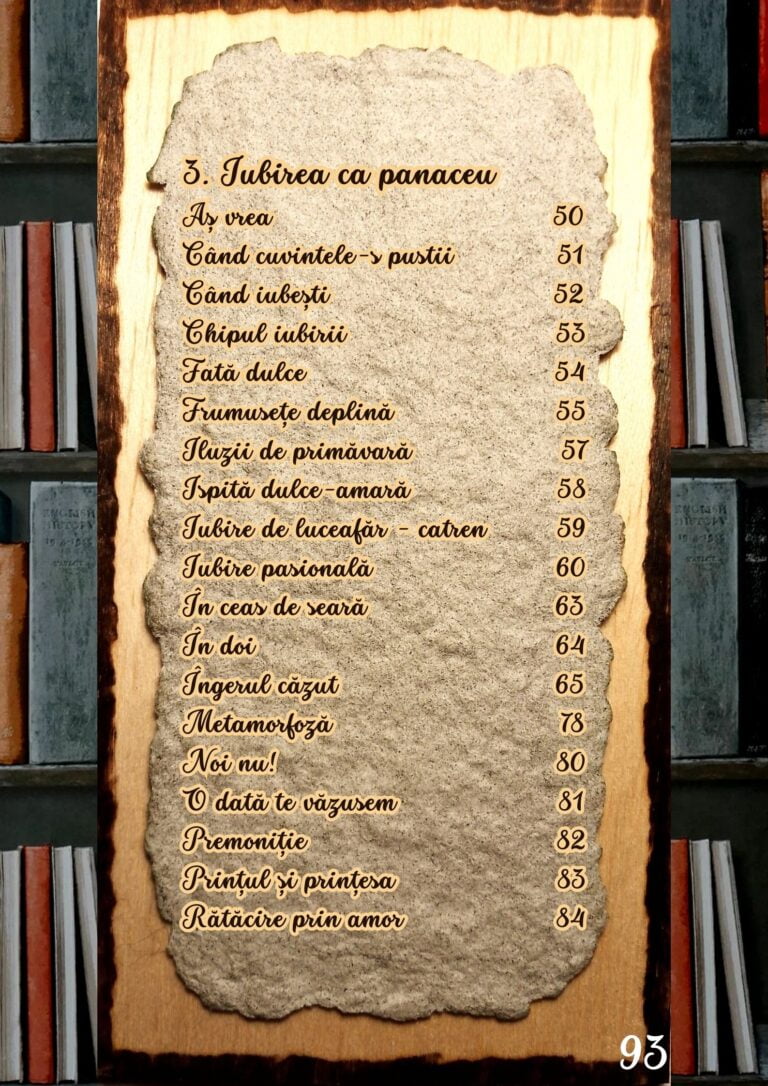 3. Iubirea ca panaceu
Aș vrea 50
Când cuvintele-s pustii 51
Când iubești 52
Chipul iubirii 53
Fată dulce 54
Frumusețe deplină 55
Iluzii de primăvară 57
Ispită dulce-amară 58
Iubire de luceafăr - catren 59
Iubire pasională 60
În ceas de seară 63
În doi 64
Îngerul căzut 65
Metamorfoză 78
Noi nu! 80
O dată te văzusem 81
Premoniție 82
Prințul și prințesa 83
Rătăcire prin amor 84
ENGLISH
HISTORY
ENGLISH
HISTORY
93